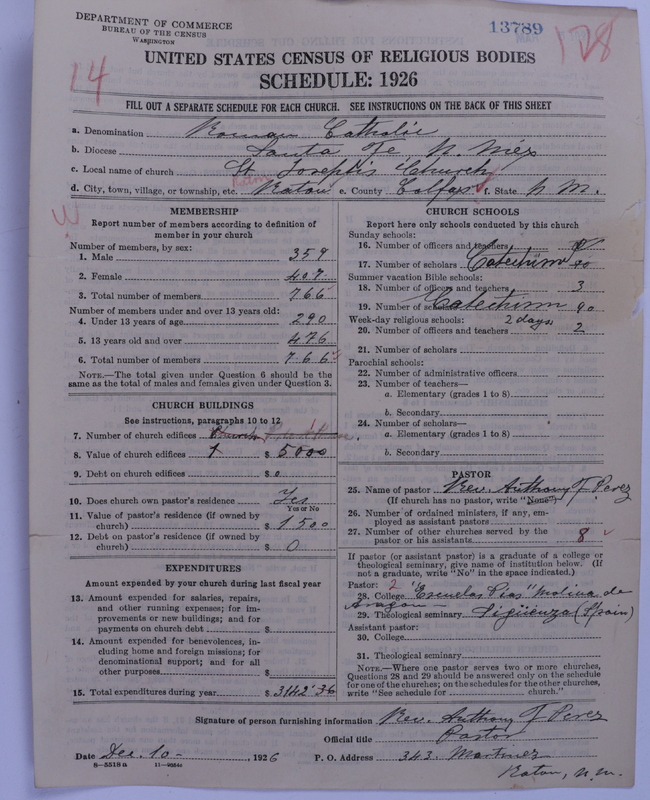 DEPARTMENT OF COMMERCE
BUREAU OF THE CENSUS
WASHINGTON
13789
128
14
UNITED STATES CENSUS OF RELIGIOUS BODIES
SCHEDULE: 1926
FILL OUT A SEPARATE SCHEDULE FOR EACH CHURCH. SEE INSTRUCTIONS ON THE BACK OF THIS SHEET
a. Denomination Roman Catholic
b. Diocese Santa Fe N. Mex
c. Local name of church St Joseph's Church
d. City, town, village, or township, etc. Raton e. County Colfax f. State N. M.
MEMBERSHIP
Report number of members according to definition of
member in your church
Number of members, by sex:
1. Male 359
2. Female 407
3. Total number of members 766
Number of members under and over 13 years old:
4. Under 13 years of age 290
5. 13 years old and over 476
6. Total number of members 766
NOTE.—The total given under Question 6 should be the
same as the total of males and females given under Question 3.
CHURCH BUILDINGS
See instructions, paragraphs 10 to 12
7. Number of church edifices Church
8. Value of church edifices 1 $ 5000
9. Debt on church edifices $ 0
10. Does church own pastor's residence Yes
Yes or No
11. Value of pastor's residence (if owned by
church) $ 1500
12. Debt on pastor's residence (if owned by
church) $ 0
EXPENDITURES
Amount expended by your church during last fiscal year
13. Amount expended for salaries, repairs,
and other running expenses; for im-
provements or new buildings; and for
payments on church debt $
14. Amount expended for benevolences, in-
cluding home and foreign missions; for
denominational support; and for all
other purposes $
15. Total expenditures during year $ 3142.36
CHURCH SCHOOLS
Report here only schools conducted by this church
Sunday schools:
16. Number of officers and teachers
17. Number of scholars Catechism 90
Summer vacation Bible schools:
18. Number of officers and teachers 3
19. Number of scholars Catechism 90
Week-day religious schools: 2 days
20. Number of officers and teachers 2
21. Number of scholars
Parochial schools:
22. Number of administrative officers
23. Number of teachers—
a. Elementary (grades 1 to 8)
b. Secondary
24. Number of scholars—
a. Elementary (grades 1 to 8)
b. Secondary
PASTOR
25. Name of pastor Rev. Anthony J Perez
(If church has no pastor, write "None")
26. Number of ordained ministers, if any, em-
ployed as assistant pastors
27. Number of other churches served by the
pastor or his assistants 8
If pastor (or assistant pastor) is a graduate of a college or
theological seminary, give name of institution below. (If
not a graduate, write "No" in the space indicated.)
Pastor: 2
28. College "Escuelas Pias" Molina de
Aragon—
29. Theological seminary Sigüenza (Spain)
Assistant pastor:
30. College
31. Theological seminary
NOTE.—Where one pastor serves two or more churches,
Questions 28 and 29 should be answered only on the schedule
for one of the churches; on the schedules for the other churches,
write "See schedule for church."
Signature of person furnishing information Rev. Anthony J Perez
Official title Pastor
Date Dec. 10 - , 1926 P. O. Address 343 Martinez
Raton, N. M.
8—5518a